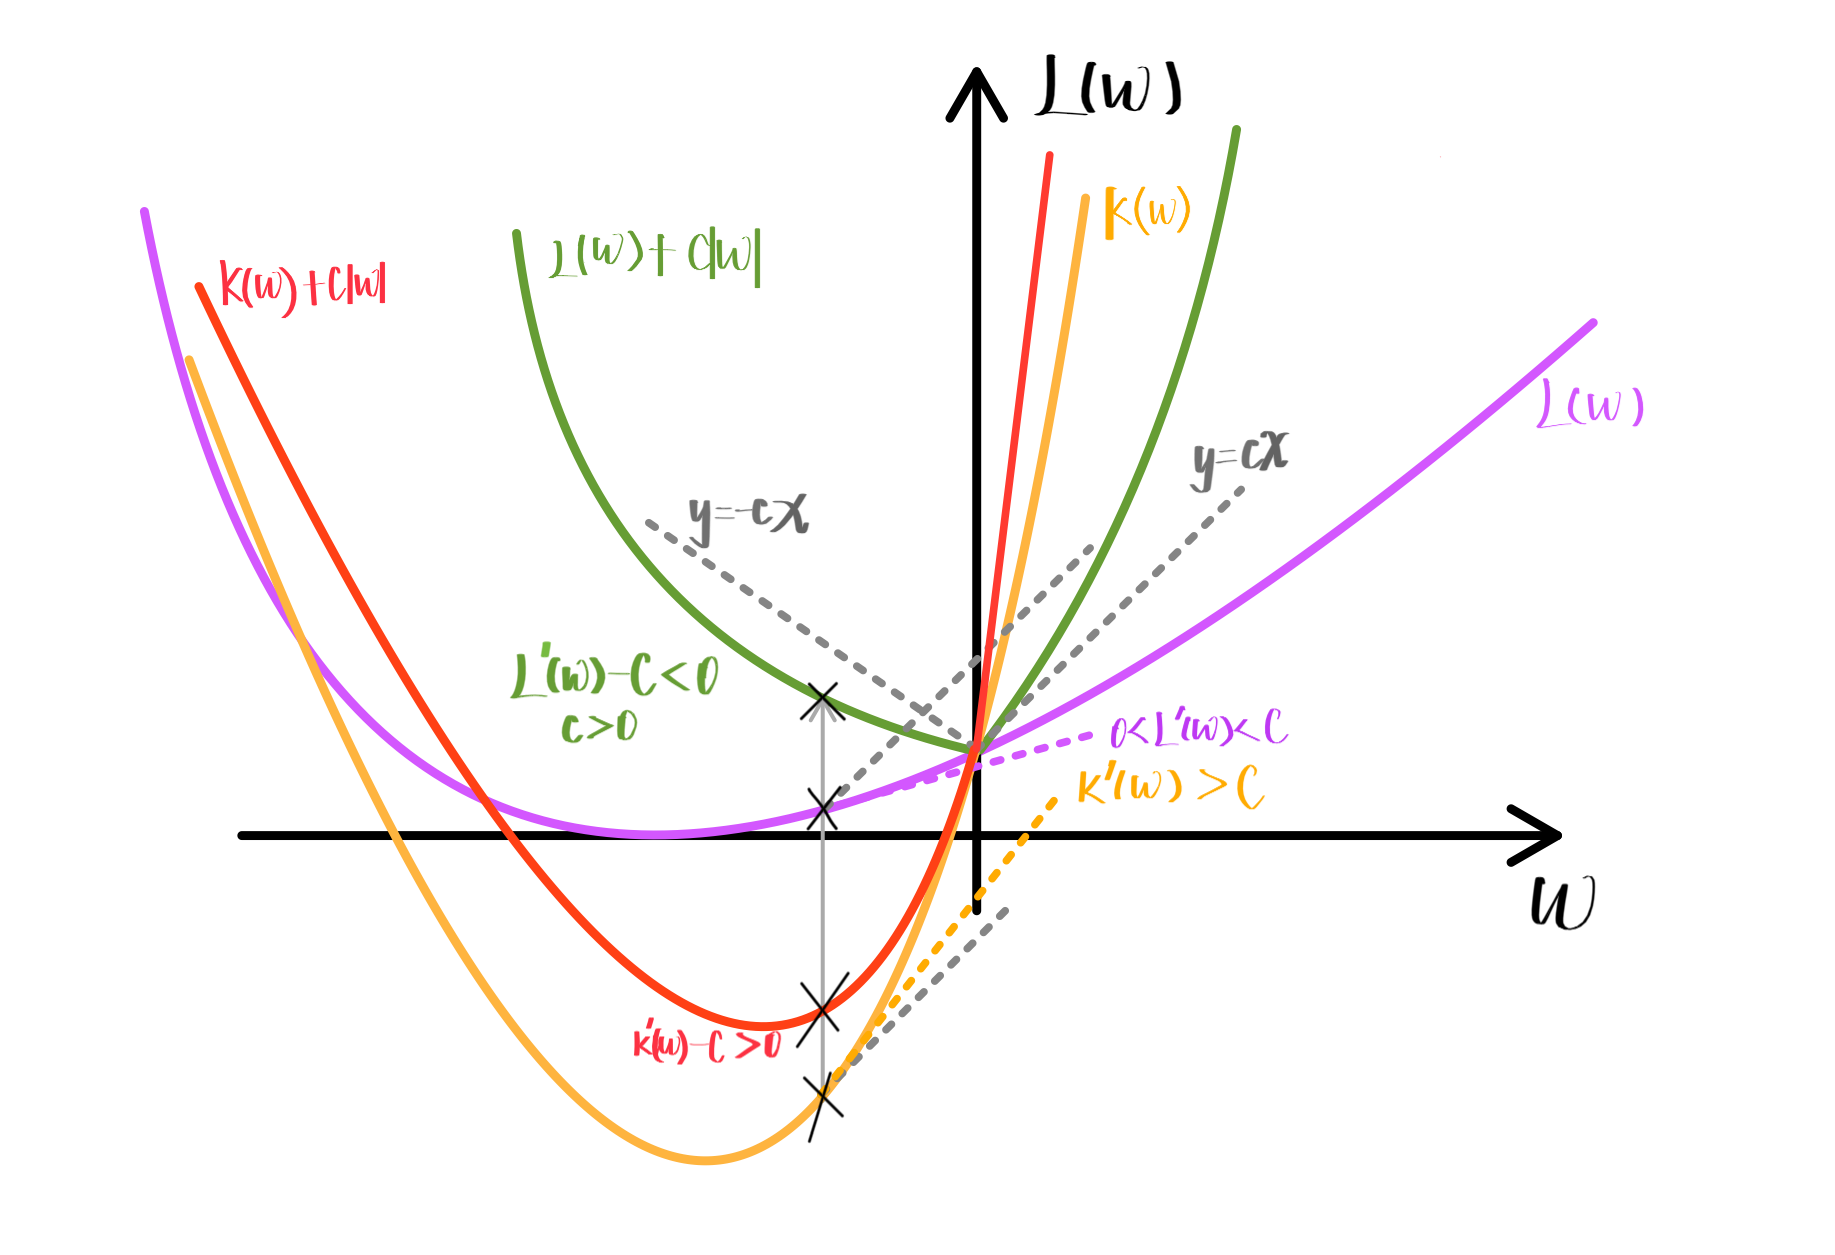 L(w)
K(w)
L(w)+C|w|
K(w)+C|w|
L(w)
y=cx
y=-cx
L'(w)-C<0
C>0
0<L'(w)<C
K'(w)>C
w
K'(w)-C>0